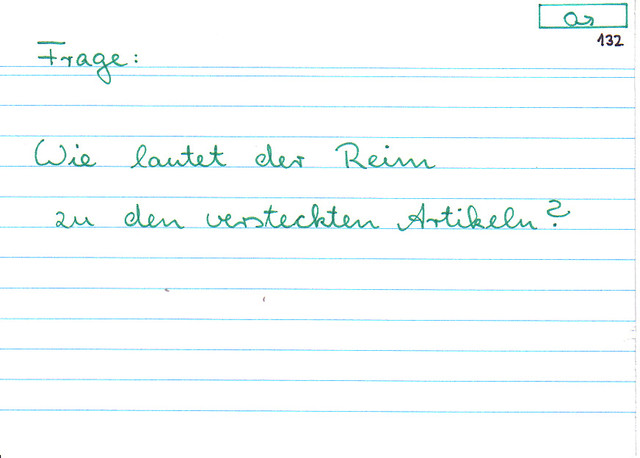 132
Frage:
Wie lautet der Reim
zu den versteckten Artikeln?